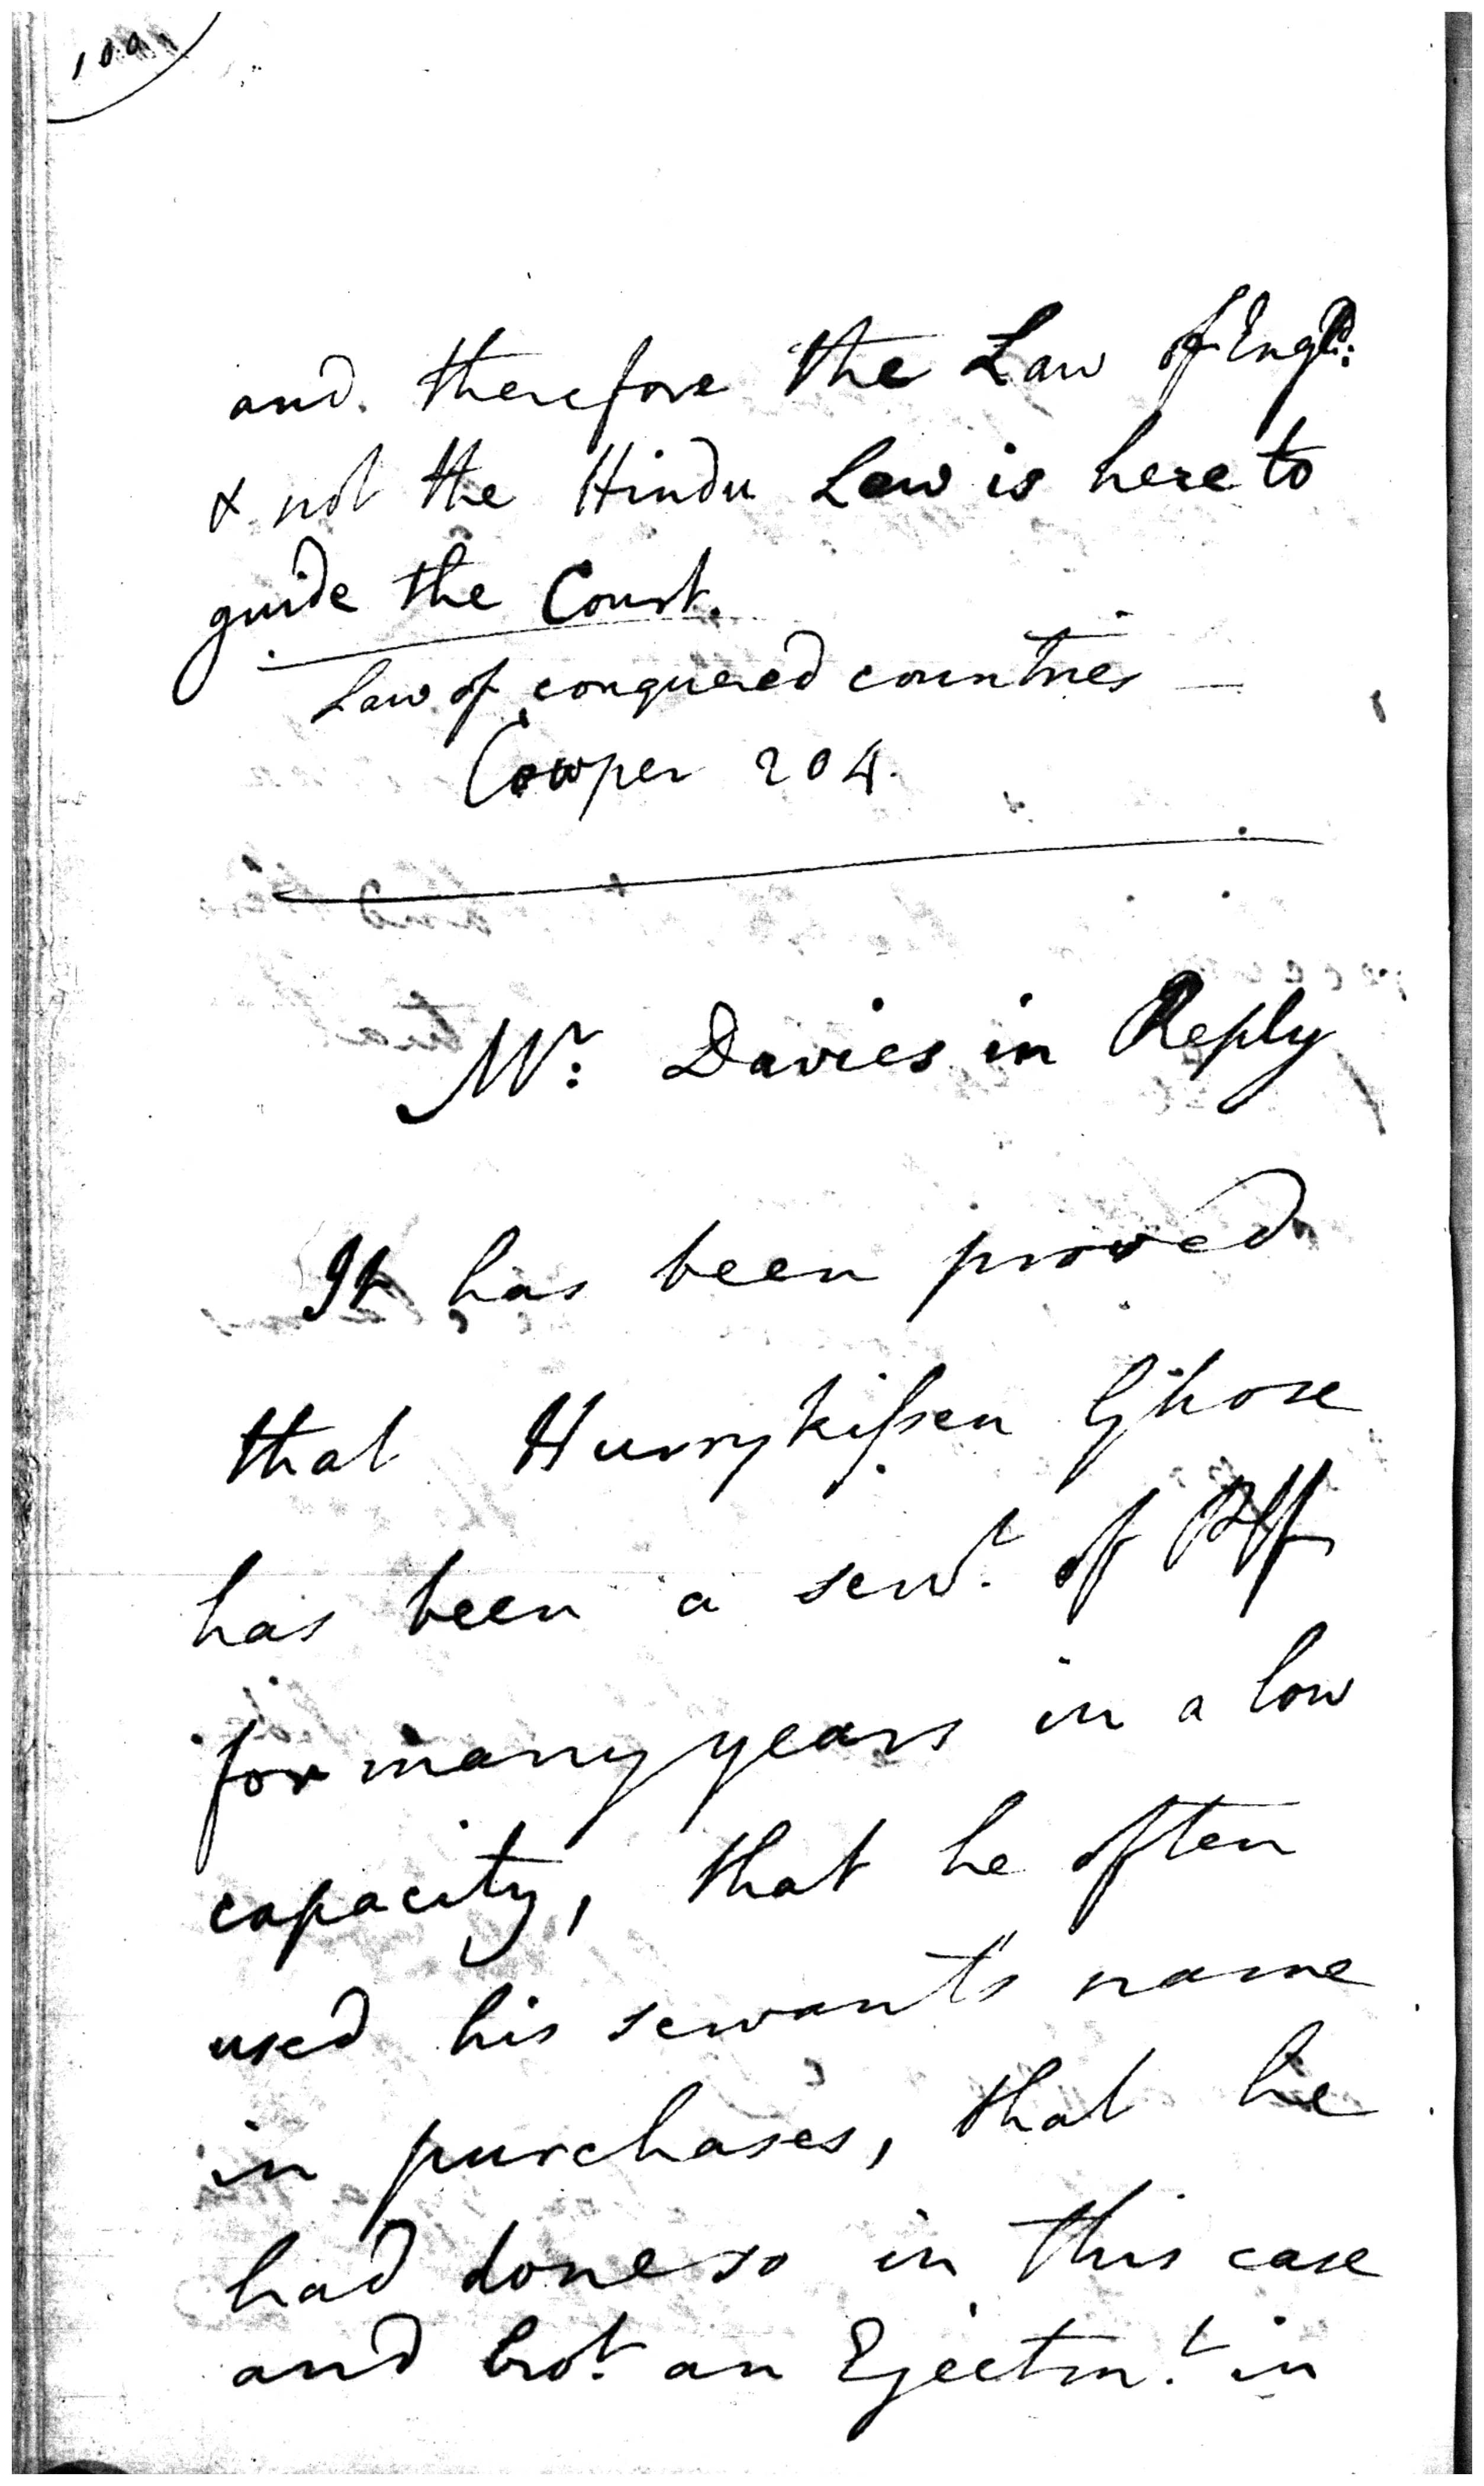 100
and therefore the Law of Engld:
& not the Hindu Law is here to
guide the Court.
Law of conquered countries —
Cowper 204.
Mr: Davies in Reply
It has been proved
that Hurrykissen Ghose
has been a servt. of Plff
for many years in a low
capacity, that he often
used his servants name
in purchases, that he
had done so in this case
and brot. an Ejectm.t in